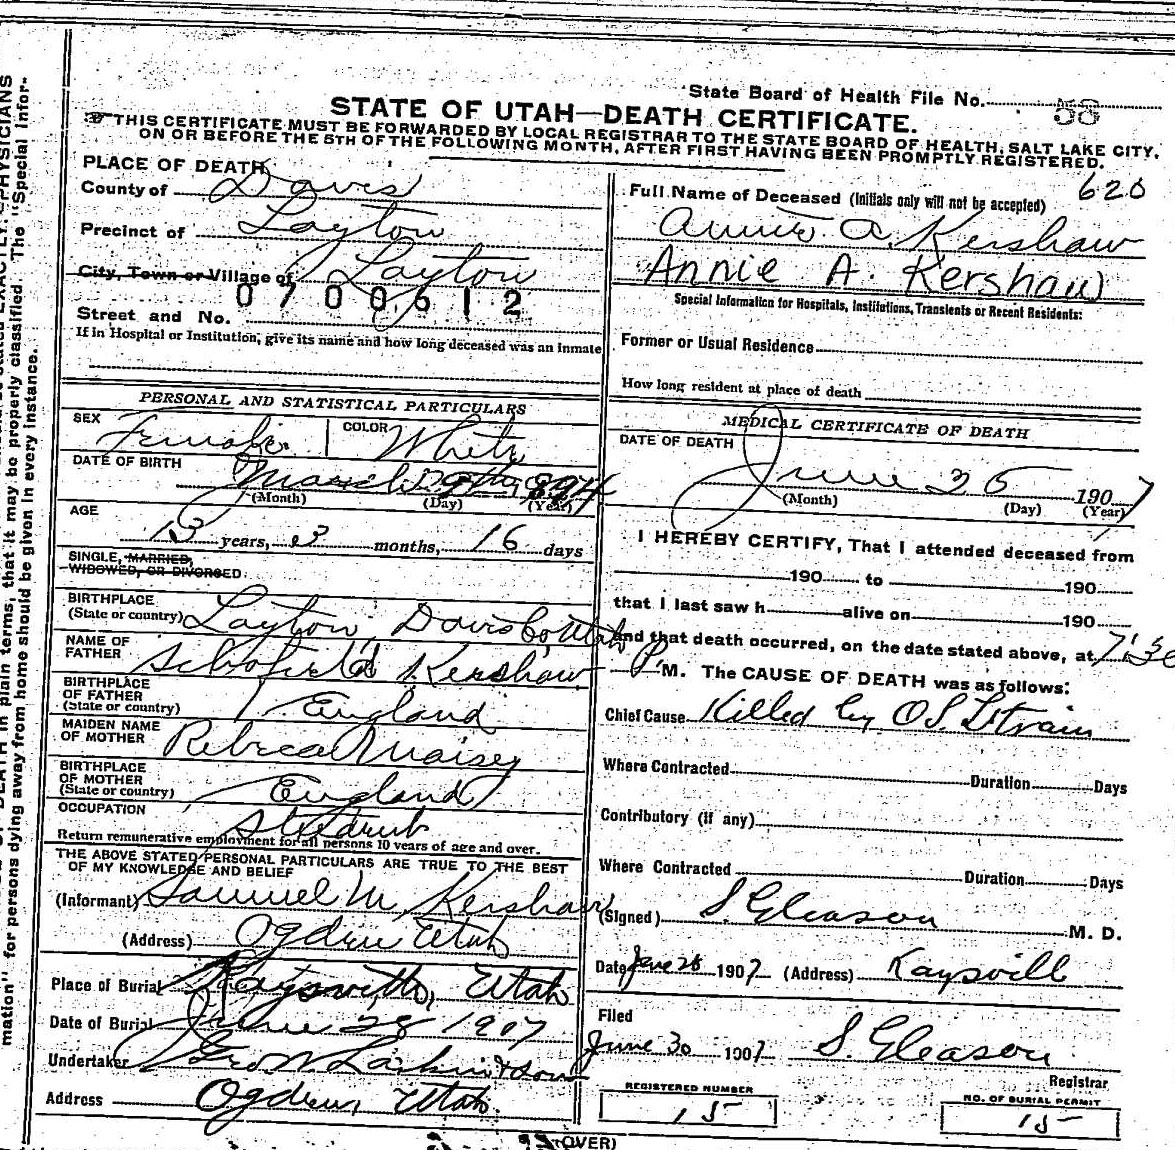 State Board of Health File No. 58
STATE OF UTAH—DEATH CERTIFICATE.
THIS CERTIFICATE MUST BE FORWARDED BY LOCAL REGISTRAR TO THE STATE BOARD OF HEALTH, SALT LAKE CITY,
ON OR BEFORE THE 5TH OF THE FOLLOWING MONTH, AFTER FIRST HAVING BEEN PROMPTLY REGISTERED.
PLACE OF DEATH
County of Davis
Precinct of Layton
City, Town or Village of Layton
0700612
Street and No.
If in Hospital or Institution, give its name and how long deceased was an inmate
PERSONAL AND STATISTICAL PARTICULARS
SEX Female COLOR White
DATE OF BIRTH March 1894
(Month) (Day) (Year)
AGE
13 years, 3 months, 16 days
SINGLE, MARRIED,
WIDOWED, OR DIVORCED
BIRTHPLACE
(State or country) Layton Davis Co Utah
NAME OF
FATHER Schofield Kershaw
BIRTHPLACE
OF FATHER
(State or country) England
MAIDEN NAME
OF MOTHER Rebeca Maisey
BIRTHPLACE
OF MOTHER
(State or country) England
OCCUPATION
Return remunerative employment for all persons 10 years of age and over.
THE ABOVE STATED PERSONAL PARTICULARS ARE TRUE TO THE BEST
OF MY KNOWLEDGE AND BELIEF
(Informant) Samuel M. Kershaw
(Address) Ogden Utah
Place of Burial Kaysville, Utah
Date of Burial June 28 1907
Undertaker Geo W. Larkin & Sons
Address Ogden, Utah.
620
Full Name of Deceased (Initials only will not be accepted)
Annie A. Kershaw
Annie A. Kershaw
Special Information for Hospitals, Institutions, Transients or Recent Residents:
Former or Usual Residence
How long resident at place of death
MEDICAL CERTIFICATE OF DEATH
DATE OF DEATH
June 26 1907
(Month) (Day) (Year)
I HEREBY CERTIFY, That I attended deceased from
190 to 190
that I last saw h alive on 190
and that death occurred, on the date stated above, at 7:30
P M. The CAUSE OF DEATH was as follows:
Chief Cause Killed by O.S.L. train
Where Contracted Duration Days
Contributory (if any)
Where Contracted Duration Days
(Signed) S. Gleason M. D.
Date June 28 1907 (Address) Kaysvill
Filed
June 30 1907 S. Gleason
Registrar
REGISTERED NUMBER
15
NO. OF BURIAL PERMIT
15
(OVER)
DEATH in plain terms, that it may be properly classified. The "Special Infor-
mation" for persons dying away from home should be given in every instance.